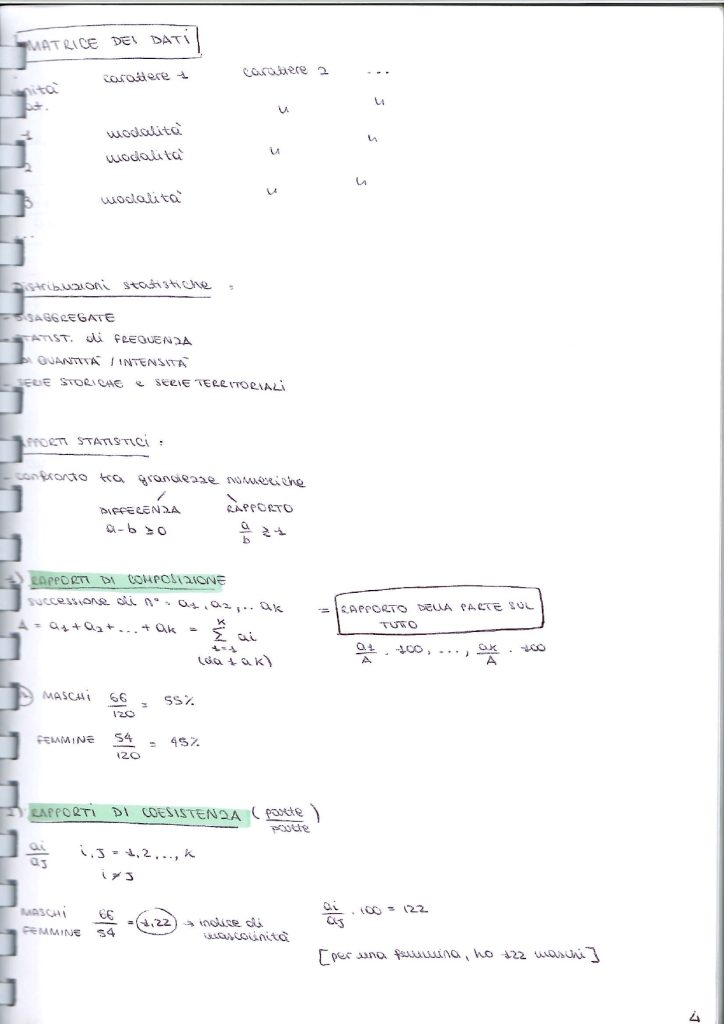 MATRICE DEI DATI
carattere 1 carattere 2 ...
unità
stat.
1 modalità " "
2 modalità " "
3 modalità " "
...
Distribuzioni statistiche :
- DISAGGREGATE
- STATIST. di FREQUENZA
- DI QUANTITÀ / INTENSITÀ
- SERIE STORICHE e SERIE TERRITORIALI
RAPPORTI STATISTICI :
- confronto tra grandezze numeriche
DIFFERENZA RAPPORTO
a-b ≥ 0 a/b ≥ 1
1) RAPPORTI DI COMPOSIZIONE
successione di n° = a1, a2, .. ak = RAPPORTO DELLA PARTE SUL TUTTO
A = a1 + a2 + ... + ak = K Σ i=1 ai
(da 1 a K) a1/A · 100, ..., ak/A · 100
MASCHI 66/120 = 55%
FEMMINE 54/120 = 45%
2) RAPPORTI DI COESISTENZA (parte/parte)
ai/aj i, j = 1, 2, .., k
i ≠ j
MASCHI/FEMMINE 66/54 = 1,22 → indice di mascolinità
ai/aj · 100 = 122
[per una femmina, ho 122 maschi]
4